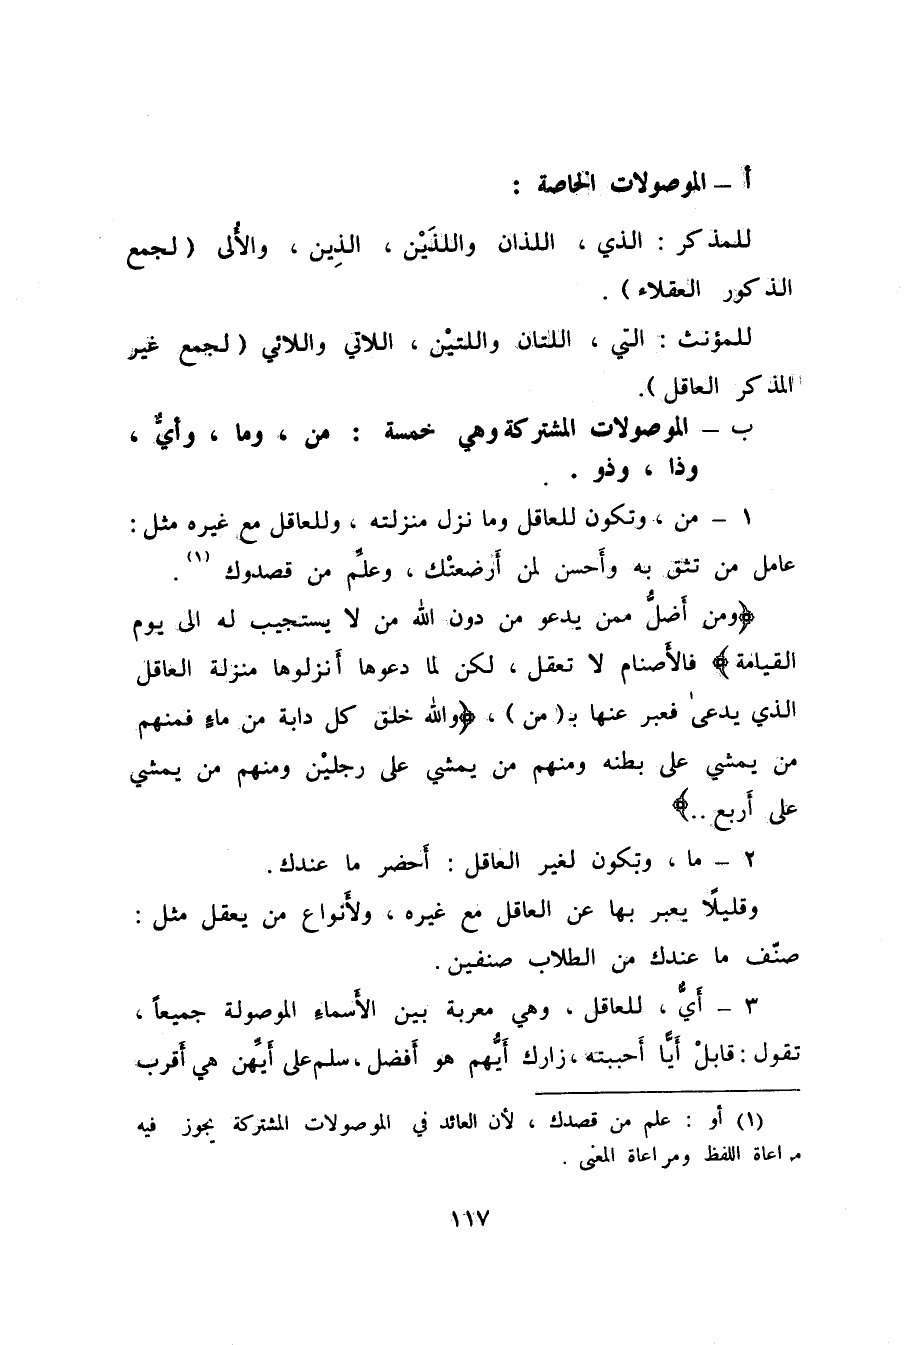 أ ــ الموصولات الخاصة :
للمذكر : الذي ، اللذان واللذَيْن ، الذين ، والأُلى ( لجمع
الذكور العقلاء ) .
للمؤنث : التي ، اللتان واللتيْن ، اللاتي واللائي ( لجمع غير
المذكر العاقل ).
ب ــ الموصولات المشتركة وهي خمسة : من ، وما ، وأيٌّ ،
وذا ، وذو .
١ ــ من ، وتكون للعاقل وما نزل منزلته ، وللعاقل مع غيره مثل :
عامل من تثق به وأَحسن لمن أَرضعتْك ، وعلِّم من قصدوك (١) .
﴿ومن أَضلُّ ممن يدعو من دون الله من لا يستجيب له الى يوم
القيامة﴾ فالأَصنام لا تعقل ، لكن لما دعوها أَنزلوها منزلة العاقل
الذي يدعىٰ فعبر عنها بـ( من ) ، ﴿والله خلق كل دابة من ماءٍ فمنهم
من يمشي على بطنه ومنهم من يمشي على رجليْن ومنهم من يمشي
على أَربع ..﴾
٢ ــ ما ، وتكون لغير العاقل : أَحضر ما عندك .
وقليلًا يعبر بها عن العاقل مع غيره ، ولأَنواع من يعقل مثل :
صنّف ما عندك من الطلاب صنفين .
٣ ــ أَيٌّ ، للعاقل ، وهي معربة بين الأَسماءِ الموصولة جميعاً ،
تقول : قابلْ أَيًّا أحببته ، زارك أَيُّهم هو أَفضل ، سلم على أَيِّهن هي أَقرب
(١) أو : علم من قصدك ، لأن العائد في الموصولات المشتركة يجوز فيه
مراعاة اللفظ ومراعاة المعنى .
١١٧